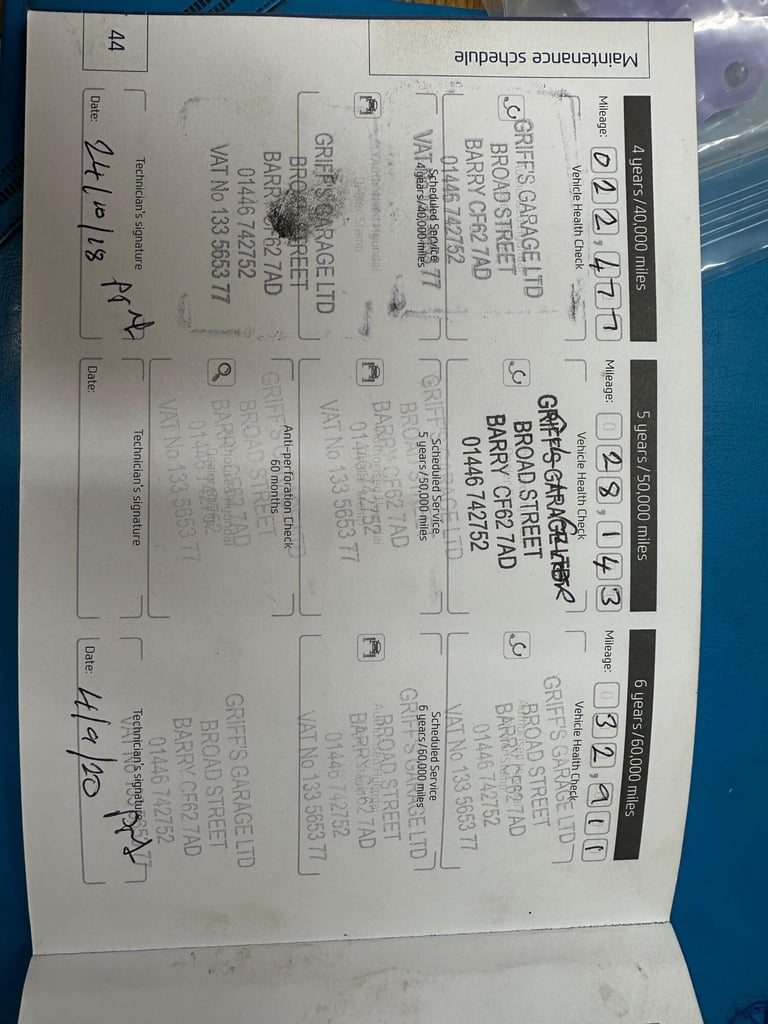 Maintenance schedule
44
4 years/40,000 miles
Mileage: 022,477
Vehicle Health Check
GRIFF'S GARAGE LTD
BROAD STREET
BARRY CF62 7AD
01446 742752
VAT 77
Scheduled Service
4 years/40,000 miles
GRIFF'S GARAGE LTD
BROAD STREET
BARRY CF62 7AD
01446 742752
VAT No 133 5653 77
Technician's signature
Date: 24/10/18
5 years/50,000 miles
Mileage: 028,143
Vehicle Health Check
GRIFF'S GARAGE LTD
BROAD STREET
BARRY CF62 7AD
01446 742752
Scheduled Service
5 years/50,000 miles
GRIFF'S GARAGE LTD
BROAD STREET
BARRY CF62 7AD
01446 742752
VAT No 133 5653 77
Anti-perforation Check
60 months
GRIFF'S GARAGE LTD
BROAD STREET
BARRY CF62 7AD
01446 742752
VAT No 133 5653 77
Technician's signature
Date:
6 years/60,000 miles
Mileage: 032,911
Vehicle Health Check
GRIFF'S GARAGE LTD
BROAD STREET
BARRY CF62 7AD
01446 742752
VAT No 133 5653 77
Scheduled Service
6 years/60,000 miles
GRIFF'S GARAGE LTD
BROAD STREET
BARRY CF62 7AD
01446 742752
VAT No 133 5653 77
GRIFF'S GARAGE LTD
BROAD STREET
BARRY CF62 7AD
01446 742752
VAT No 133 5653 77
Technician's signature
Date: 4/9/20